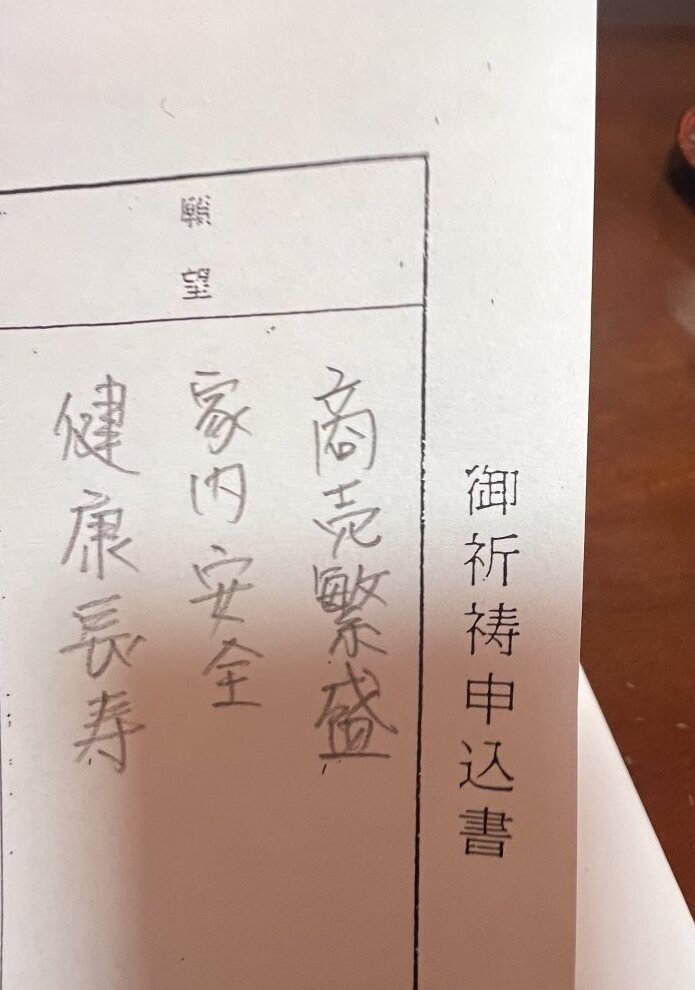 御祈祷申込書
願望
商売繁盛
家内安全
健康長寿